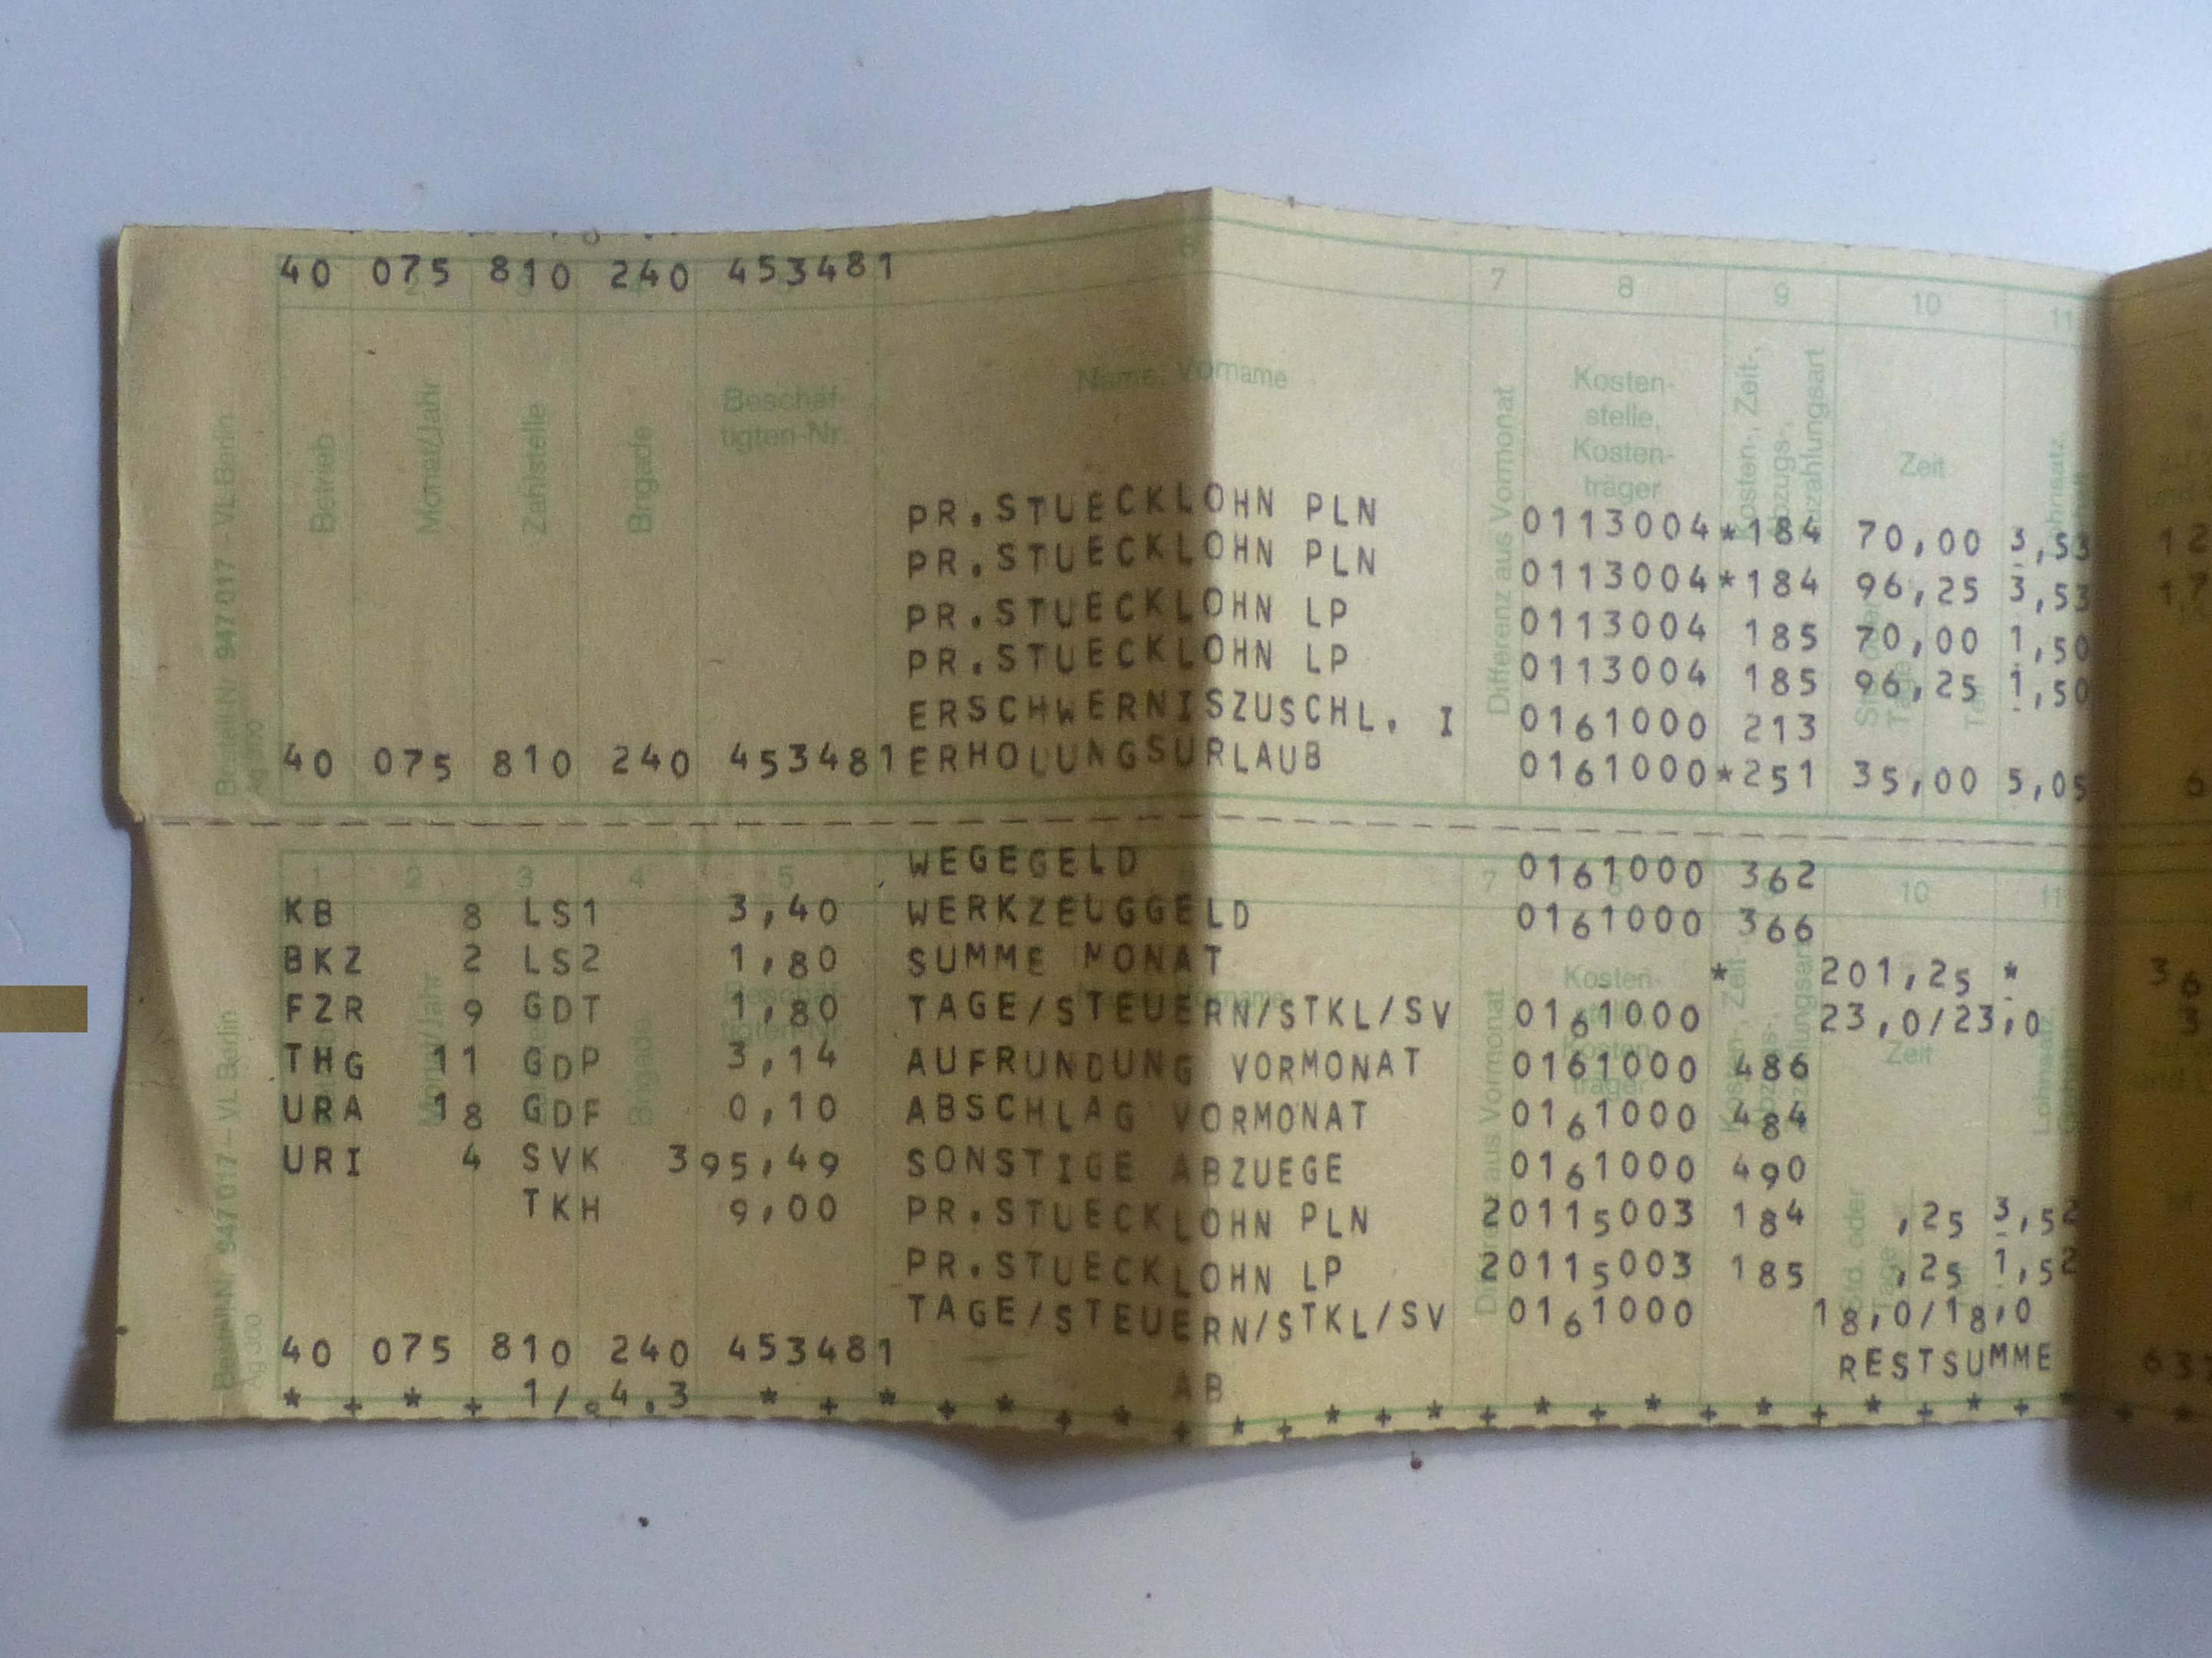 40 075 810 240 453481
7 8 9 10 11
Betrieb
Monat/Jahr
Zahlstelle
Brigade
Beschäf-
tigten-Nr.
Name, Vorname
Differenz aus Vormonat
Kosten-
stelle,
Kosten-
träger
Zeit
PR.STUECKLOHN PLN 0113004*184 70,00 3,53 12
PR.STUECKLOHN PLN 0113004*184 96,25 3,53 17
PR.STUECKLOHN LP 0113004 185 70,00 1,50
PR.STUECKLOHN LP 0113004 185 96,25 1,50
ERSCHWERNISZUSCHL. I 0161000 213
40 075 810 240 453481 ERHOLUNGSURLAUB 0161000*251 35,00 5,05 6
Bestell-Nr. 947 017 - VL Berlin
Ag 300
1 2 3 4 5 7 8 10 11
WEGEGELD 0161000 362
KB 8 LS1 3,40 WERKZEUGGELD 0161000 366
BKZ 2 LS2 1,80 SUMME MONAT * 201,25 * 36
FZR 9 GDT 1,80 TAGE/STEUERN/STKL/SV 0161000 23,0/23,0 3
THG 11 GDP 3,14 AUFRUNDUNG VORMONAT 0161000 486
URA 18 GDF 0,10 ABSCHLAG VORMONAT 0161000 484
URI 4 SVK 395,49 SONSTIGE ABZUEGE 0161000 490
TKH 9,00 PR.STUECKLOHN PLN 20115003 184 ,25 3,52
PR.STUECKLOHN LP 20115003 185 ,25 1,52
TAGE/STEUERN/STKL/SV 0161000 18,0/18,0
40 075 810 240 453481 RESTSUMME 63
AB
Monat/Jahr
Brigade
Differenz aus Vormonat
Kosten-
Zeit
Std. oder
Tage
Bestell-Nr. 947 017 - VL Berlin
Ag 300
* + * + 1/.4.3 * + * + * + * + * + * + * + * + * + * + * + * + *